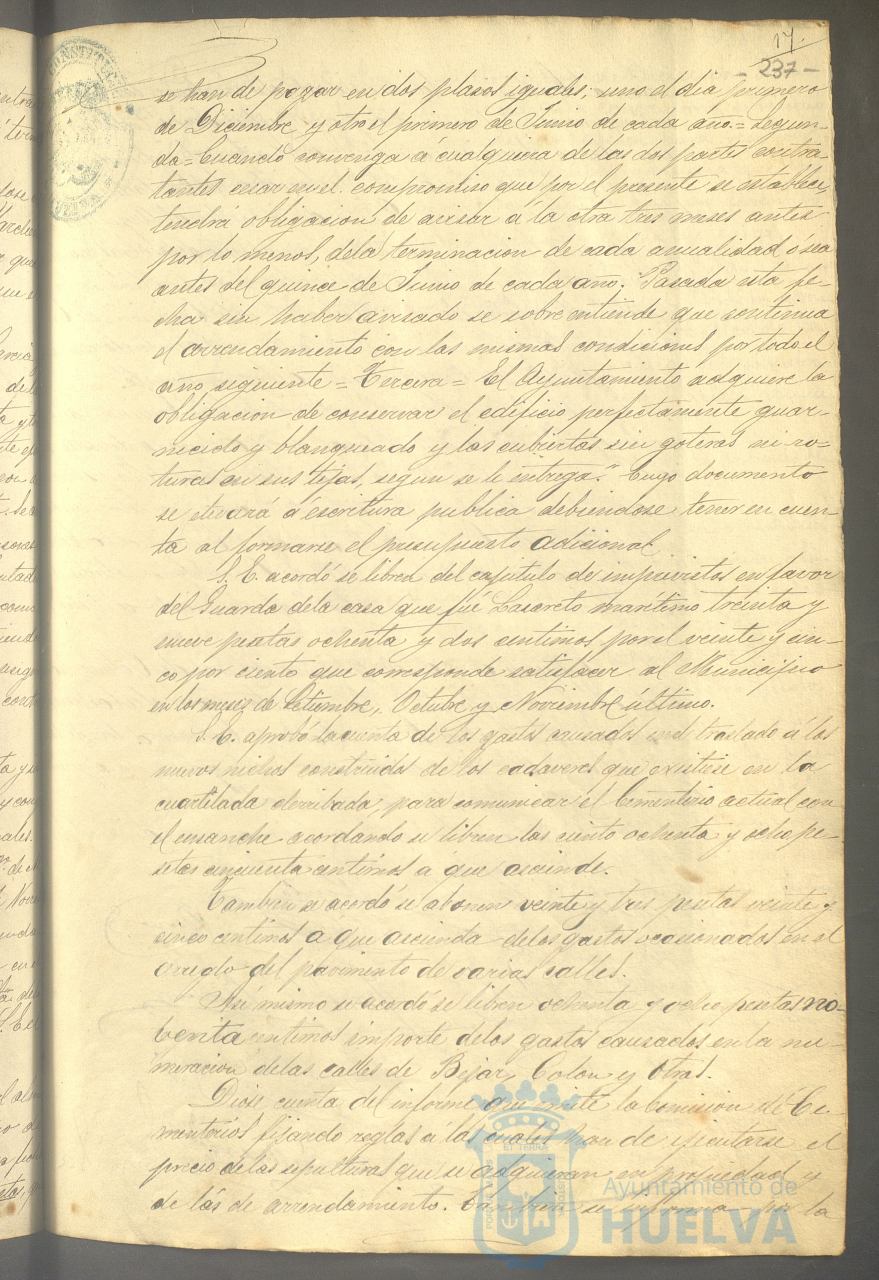 17.
- 237 -
se han de pagar en dos plasos iguales; uno el dia primero
de Diciembre y otro el primero de Junio de cada año.= Segun-
da= Cuando convenga á cualquiera de las dos partes contra-
tantes cesar en el compromiso que por el presente se establece,
tendrá obligacion de avisar á la otra tres meses antes
por lo menos, dela terminacion de cada anualidad ó sea
antes del quince de Junio de cada año. Pasada esta fe-
cha sin haber avisado se sobre entiende que continua
el arrendamiento con las mismas condiciones por todo el
año siguiente = Tercera = El Ayuntamiento adquiere la
obligacion de conservar el edificio perfectamente guar-
necido y blanqueado y las cubiertas sin goteras ni ro-
turas en sus tejas, segun se le entrega." Cuyo documento
se elevará á escritura publica debiendose tener en cuen-
ta al formarse el presupuesto adicional.
S. E. acordó se libren del capitulo de imprevistos en favor
del Guarda dela casa que fué Lazareto maritimo treinta y
nueve pesetas ochenta y dos centimos por el veinte y cin-
co por ciento que corresponde satisfacer al Municipio
en los meses de Setiembre, Octubre y Noviembre último.
S. E. aprobó la cuenta de los gastos causados en el traslado á los
nuevos nichos construidos de los cadaveres que existian en la
cuartelada derribada, para comunicar el Cementerio actual con
el ensanche acordando se libren las ciento ochenta y ocho pe-
setas cincuenta centimos a que asciende.
Tambien se acordó se abonen veinte y tres pesetas veinte y
cinco centimos a que ascienda delos gastos ocasionados en el
areglo del pavimento de varias calles.
Asi mismo se acordo se libren ochenta y ocho pesetas no-
benta centimos importe delos gastos causados en la nu-
meracion delas calles de Bejar, Colon y otras.
Diose cuenta del informe que emite la Comision de Ce-
menterios fijando reglas á las cuales han de ejecutarse el
precio de las sepulturas que se adquieran en propiedad y
de las de arrendamiento. Tambien se informa por la
Ayuntamiento de
HUELVA